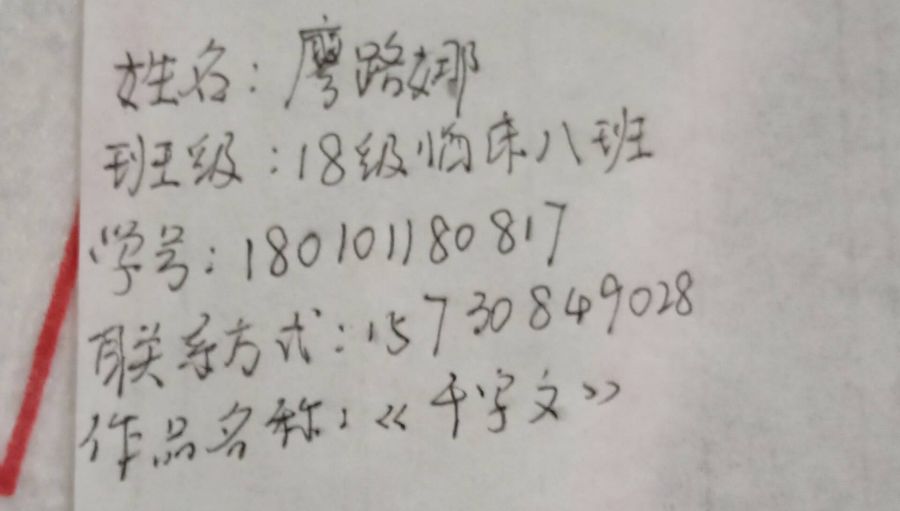 姓名：廖路娜
班级：18级临床八班
学号：180101180817
联系方式：15730849028
作品名称：《千字文》